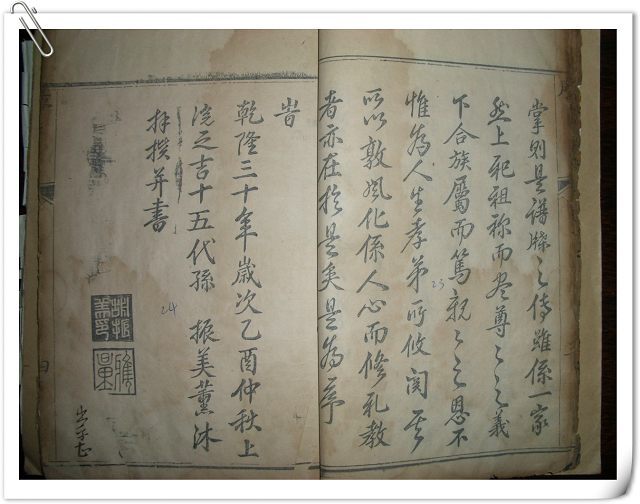 掌則是譜牒之傳雖係一家
然上祀祖祢而尽尊々之義
下合族屬而篤親々之恩不
惟為人生孝弟所攸関
所以敦風化係人心而修礼教
者亦在於是矣是為序
23
旹
乾隆三十年歲次乙酉仲秋上
浣之吉十五代孫 振美薰沐
拜撰并書
24
胡振美印
雅量